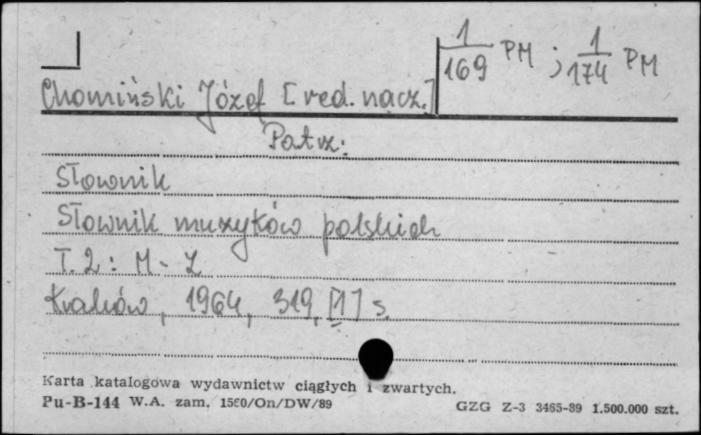 1/169 PM ; 1/174 PM
Chomiński Józef [red. nacz.]
Patrz:
Słownik
Słownik muzyków polskich
T. 2 : M - Z
Kraków, 1964, 319, [1] s.
Karta katalogowa wydawnictw ciągłych i zwartych.
Pu-B-144 W.A. zam. 1560/On/DW/89
GZG Z-3 3465-89 1.500.000 szt.